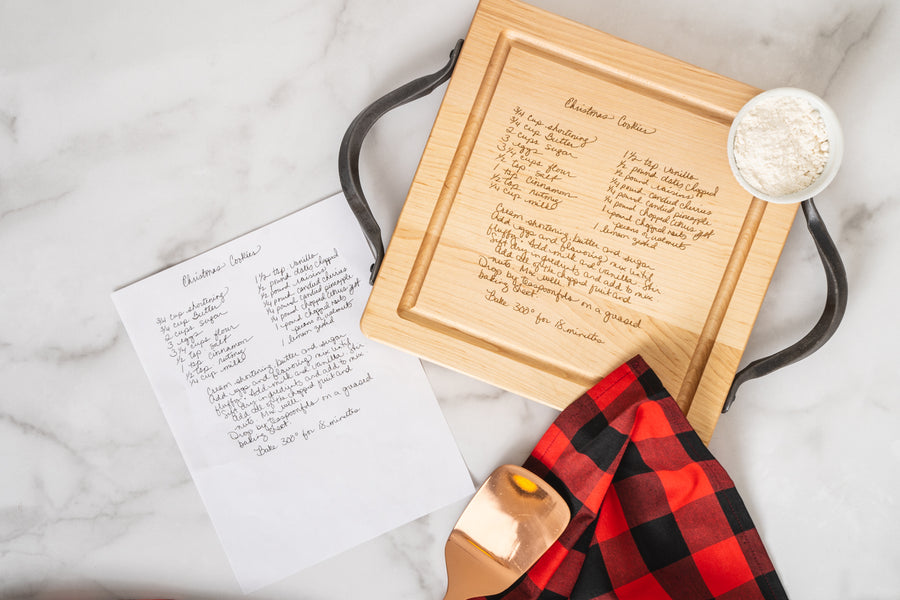 Christmas Cookies
3/4 cup shortening
3/4 cup Butter
2 cups sugar
3 eggs
3 3/4 cups flour
1/2 tsp salt
1 tsp cinnamon
1/2 tsp nutmeg
1/4 cup milk
1 1/2 tsp vanilla
1/2 pound dates chopped
1/2 pound raisins
1/4 pound candied cherries
1/4 pound candied pineapple
1/4 pound chopped citrus
1 pound chopped nuts
pecans & walnuts
1 lemon
Cream shortening butter and sugar.
Add eggs and flavoring mix until
fluffy. Add milk and vanilla. Stir
Sift dry ingredients and add to mix
add all of the chopped fruit and
nuts. Mix well
Drop by teaspoonfuls on a greased
baking sheet.
Bake 300° for 18 minutes
Christmas Cookies
3/4 cup shortening
3/4 cup Butter
2 cups sugar
3 eggs
3 3/4 cups flour
1/2 tsp salt
1 tsp cinnamon
1/2 tsp nutmeg
1/4 cup milk
1 1/2 tsp vanilla
1/2 pound dates chopped
1/2 pound raisins
1/4 pound candied cherries
1/4 pound candied pineapple
1/4 pound chopped citrus
1 pound chopped nuts
pecans & walnuts
1 lemon
Cream shortening butter and sugar.
Add eggs and flavoring mix until
fluffy. Add milk and vanilla. Stir
Sift dry ingredients and add to mix
add all of the chopped fruit and
nuts. Mix well
Drop by teaspoonfuls on a greased
baking sheet.
Bake 300° for 18 minutes